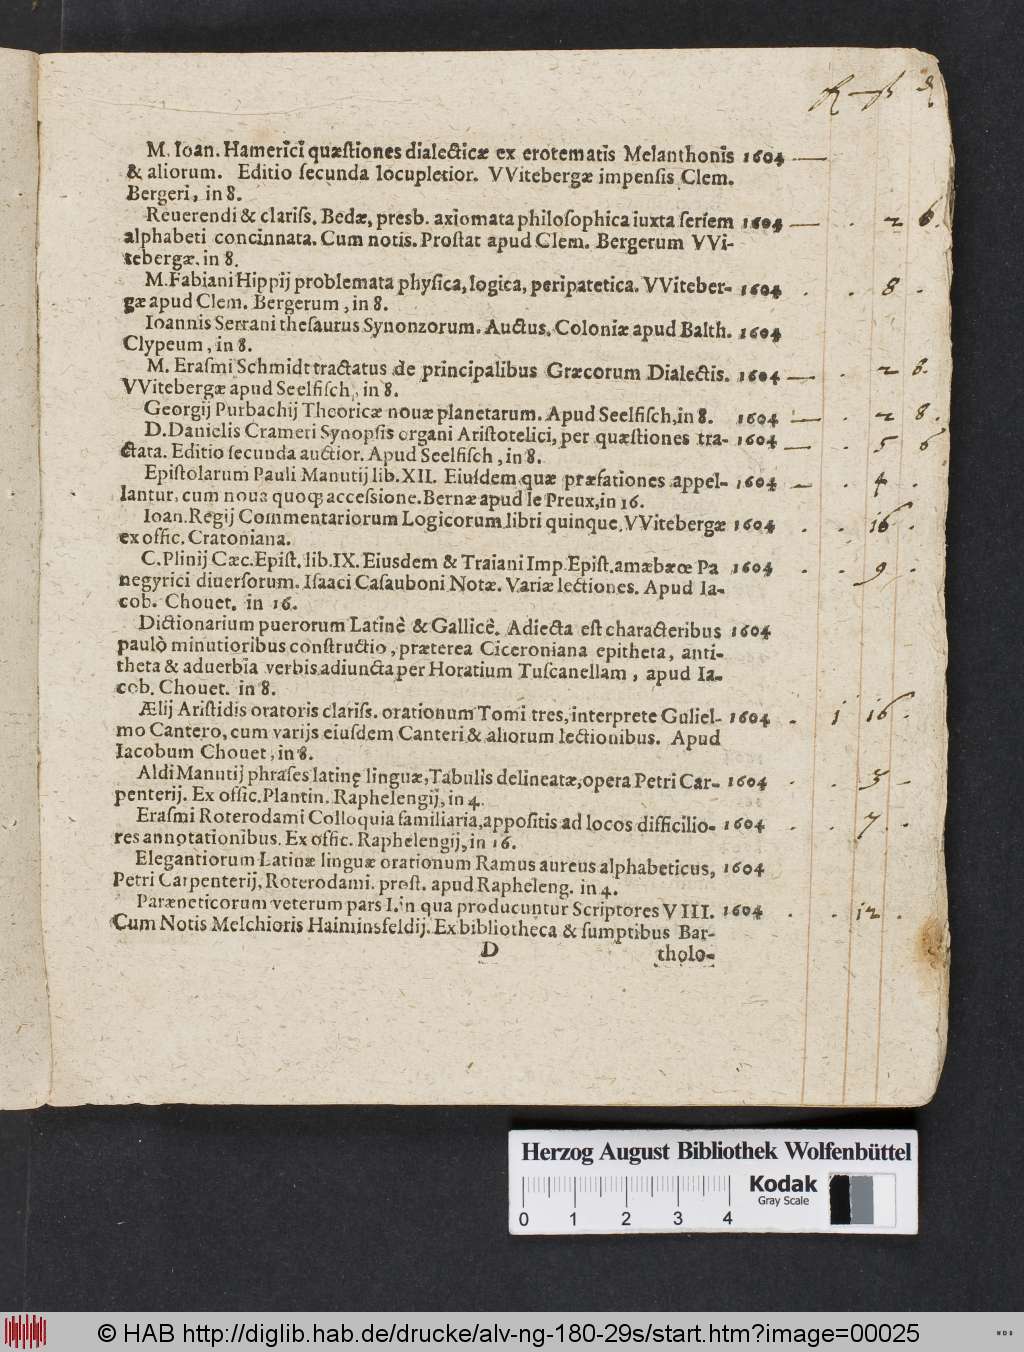 M. Ioan. Hamerici quæstiones dialecticæ ex erotematis Melanthonis 1604 —
& aliorum. Editio secunda locupletior. VVitebergæ impensis Clem.
Bergeri, in 8.
Reuerendi & clariss. Bedæ, presb. axiomata philosophica iuxta seriem 1604 — . 2 6.
alphabeti concinnata. Cum notis. Prostat apud Clem. Bergerum VVi-
tebergæ. in 8.
M. Fabiani Hippij problemata physica, logica, peripatetica. VViteber- 1604 . . 8 .
gæ apud Clem. Bergerum, in 8.
Ioannis Serrani thesaurus Synonzorum. Auctus. Coloniæ apud Balth. 1604
Clypeum, in 8.
M. Erasmi Schmidt tractatus de principalibus Græcorum Dialectis. 1604 — . 2 6.
VVitebergæ apud Seelfisch, in 8.
Georgij Purbachij Theoricæ nouæ planetarum. Apud Seelfisch, in 8. 1604 — . 2 8.
D. Danielis Crameri Synopsis organi Aristotelici, per quæstiones tra- 1604 — . 5 6
ctata. Editio secunda auctior. Apud Seelfisch, in 8.
Epistolarum Pauli Manutij lib. XII. Eiusdem quæ præfationes appel- 1604 — . 4 .
lantur, cum noua quoq; accessione. Bernæ apud le Preux, in 16.
Ioan. Regij Commentariorum Logicorum libri quinque, VVitebergæ 1604 . . 16 .
ex offic. Cratoniana.
C. Plinij Cæc. Epist. lib. IX. Eiusdem & Traiani Imp. Epist. amæbææ Pa 1604 . . 9 .
negyrici diuersorum. Isaaci Casauboni Notæ. Variæ lectiones. Apud Ia-
cob. Chouet. in 16.
Dictionarium puerorum Latinè & Gallicê. Adiecta est characteribus 1604
paulò minutioribus constructio, præterea Ciceroniana epitheta, anti-
theta & aduerbia verbis adiuncta per Horatium Tuscanellam, apud Ia-
cob. Chouet. in 8.
Ælij Aristidis oratoris clariss. orationum Tomi tres, interprete Guliel- 1604 . 1 16 .
mo Cantero, cum varijs eiusdem Canteri & aliorum lectionibus. Apud
Iacobum Chouet, in 8.
Aldi Manutij phrases latinę linguæ, Tabulis delineatæ, opera Petri Car- 1604 . . 3 –
penterij. Ex offic. Plantin. Raphelengij, in 4.
Erasmi Roterodami Colloquia familiaria, appositis ad locos difficilio- 1604 . . 7 . .
res annotationibus. Ex offic. Raphelengij, in 16.
Elegantiorum Latinæ linguæ orationum Ramus aureus alphabeticus, 1604
Petri Carpenterij, Roterodami. prost. apud Rapheleng. in 4.
Paræneticorum veterum pars I. in qua producuntur Scriptores VIII. 1604 . . 12 .
Cum Notis Melchioris Haiminsfeldij. Ex bibliotheca & sumptibus Bar-
D tholo-
Herzog August Bibliothek Wolfenbüttel
Kodak
Gray Scale
0 1 2 3 4
© HAB http://diglib.hab.de/drucke/alv-ng-180-29s/start.htm?image=00025